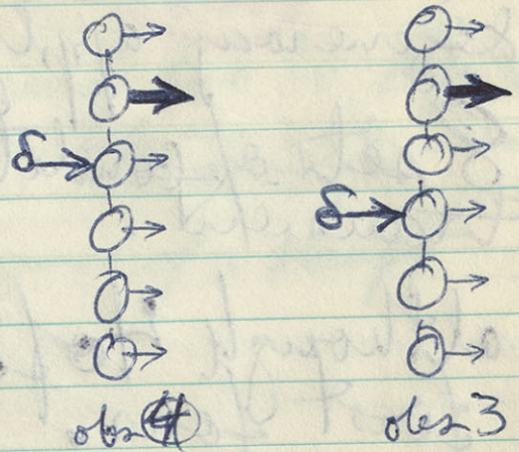 δ
δ
obs 4
obs 3